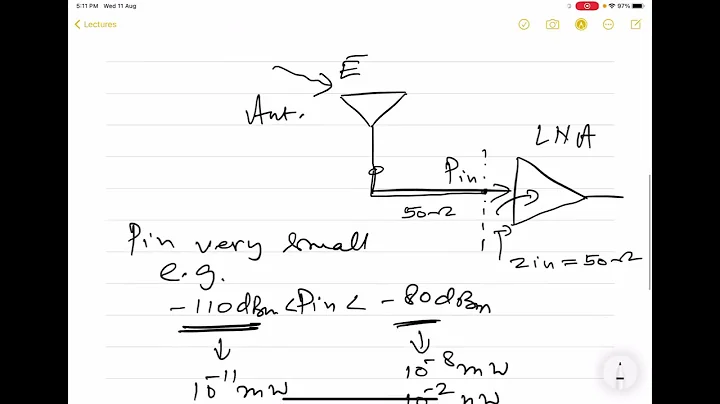 5:11 PM Wed 11 Aug
97%
Lectures
E
Ant.
LNA
Pin
50Ω
Zin = 50Ω
Pin very small
e.g.
-110dBm < Pin < -80dBm
10^-11 mW
10^-8 mW
10^-2 nW